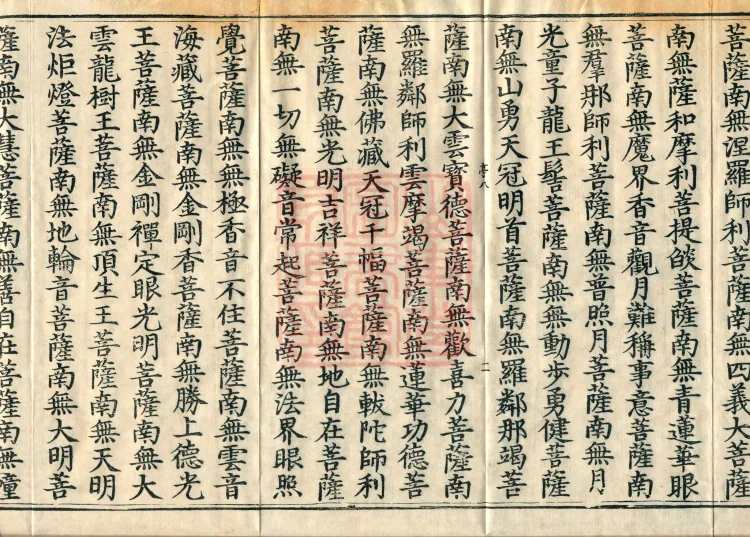 菩薩南無涅羅師利菩薩南無四義大菩薩
南無薩和摩利菩提燄菩薩南無青蓮華眼
菩薩南無魔界香音觀月難稱事意菩薩南
無羣那師利菩薩南無普照月菩薩南無月
光童子龍王髻菩薩南無無動步勇健菩薩
南無山勇天冠明首菩薩南無羅鄰那竭菩
薩南無大雲寶德菩薩南無歡喜力菩薩南
無羅鄰師利雲摩竭菩薩南無蓮華功德菩
薩南無佛藏天冠千幅菩薩南無軷陀師利
菩薩南無光明吉祥菩薩南無地自在菩薩
南無一切無礙音常起菩薩南無法界眼照
覺菩薩南無無極香音不住菩薩南無雲音
海藏菩薩南無金剛香菩薩南無勝上德光
王菩薩南無金剛禪定眼光明菩薩南無大
雲龍樹王菩薩南無頂生王菩薩南無天明
法炬燈菩薩南無地輪音菩薩南無大明菩
薩南無大慧菩薩南無善自在菩薩南無